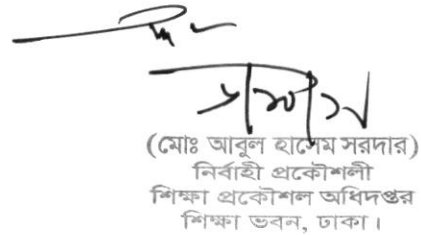 (মোঃ আবুল হাসেম সরদার)
নির্বাহী প্রকৌশলী
শিক্ষা প্রকৌশল অধিদপ্তর
শিক্ষা ভবন, ঢাকা।